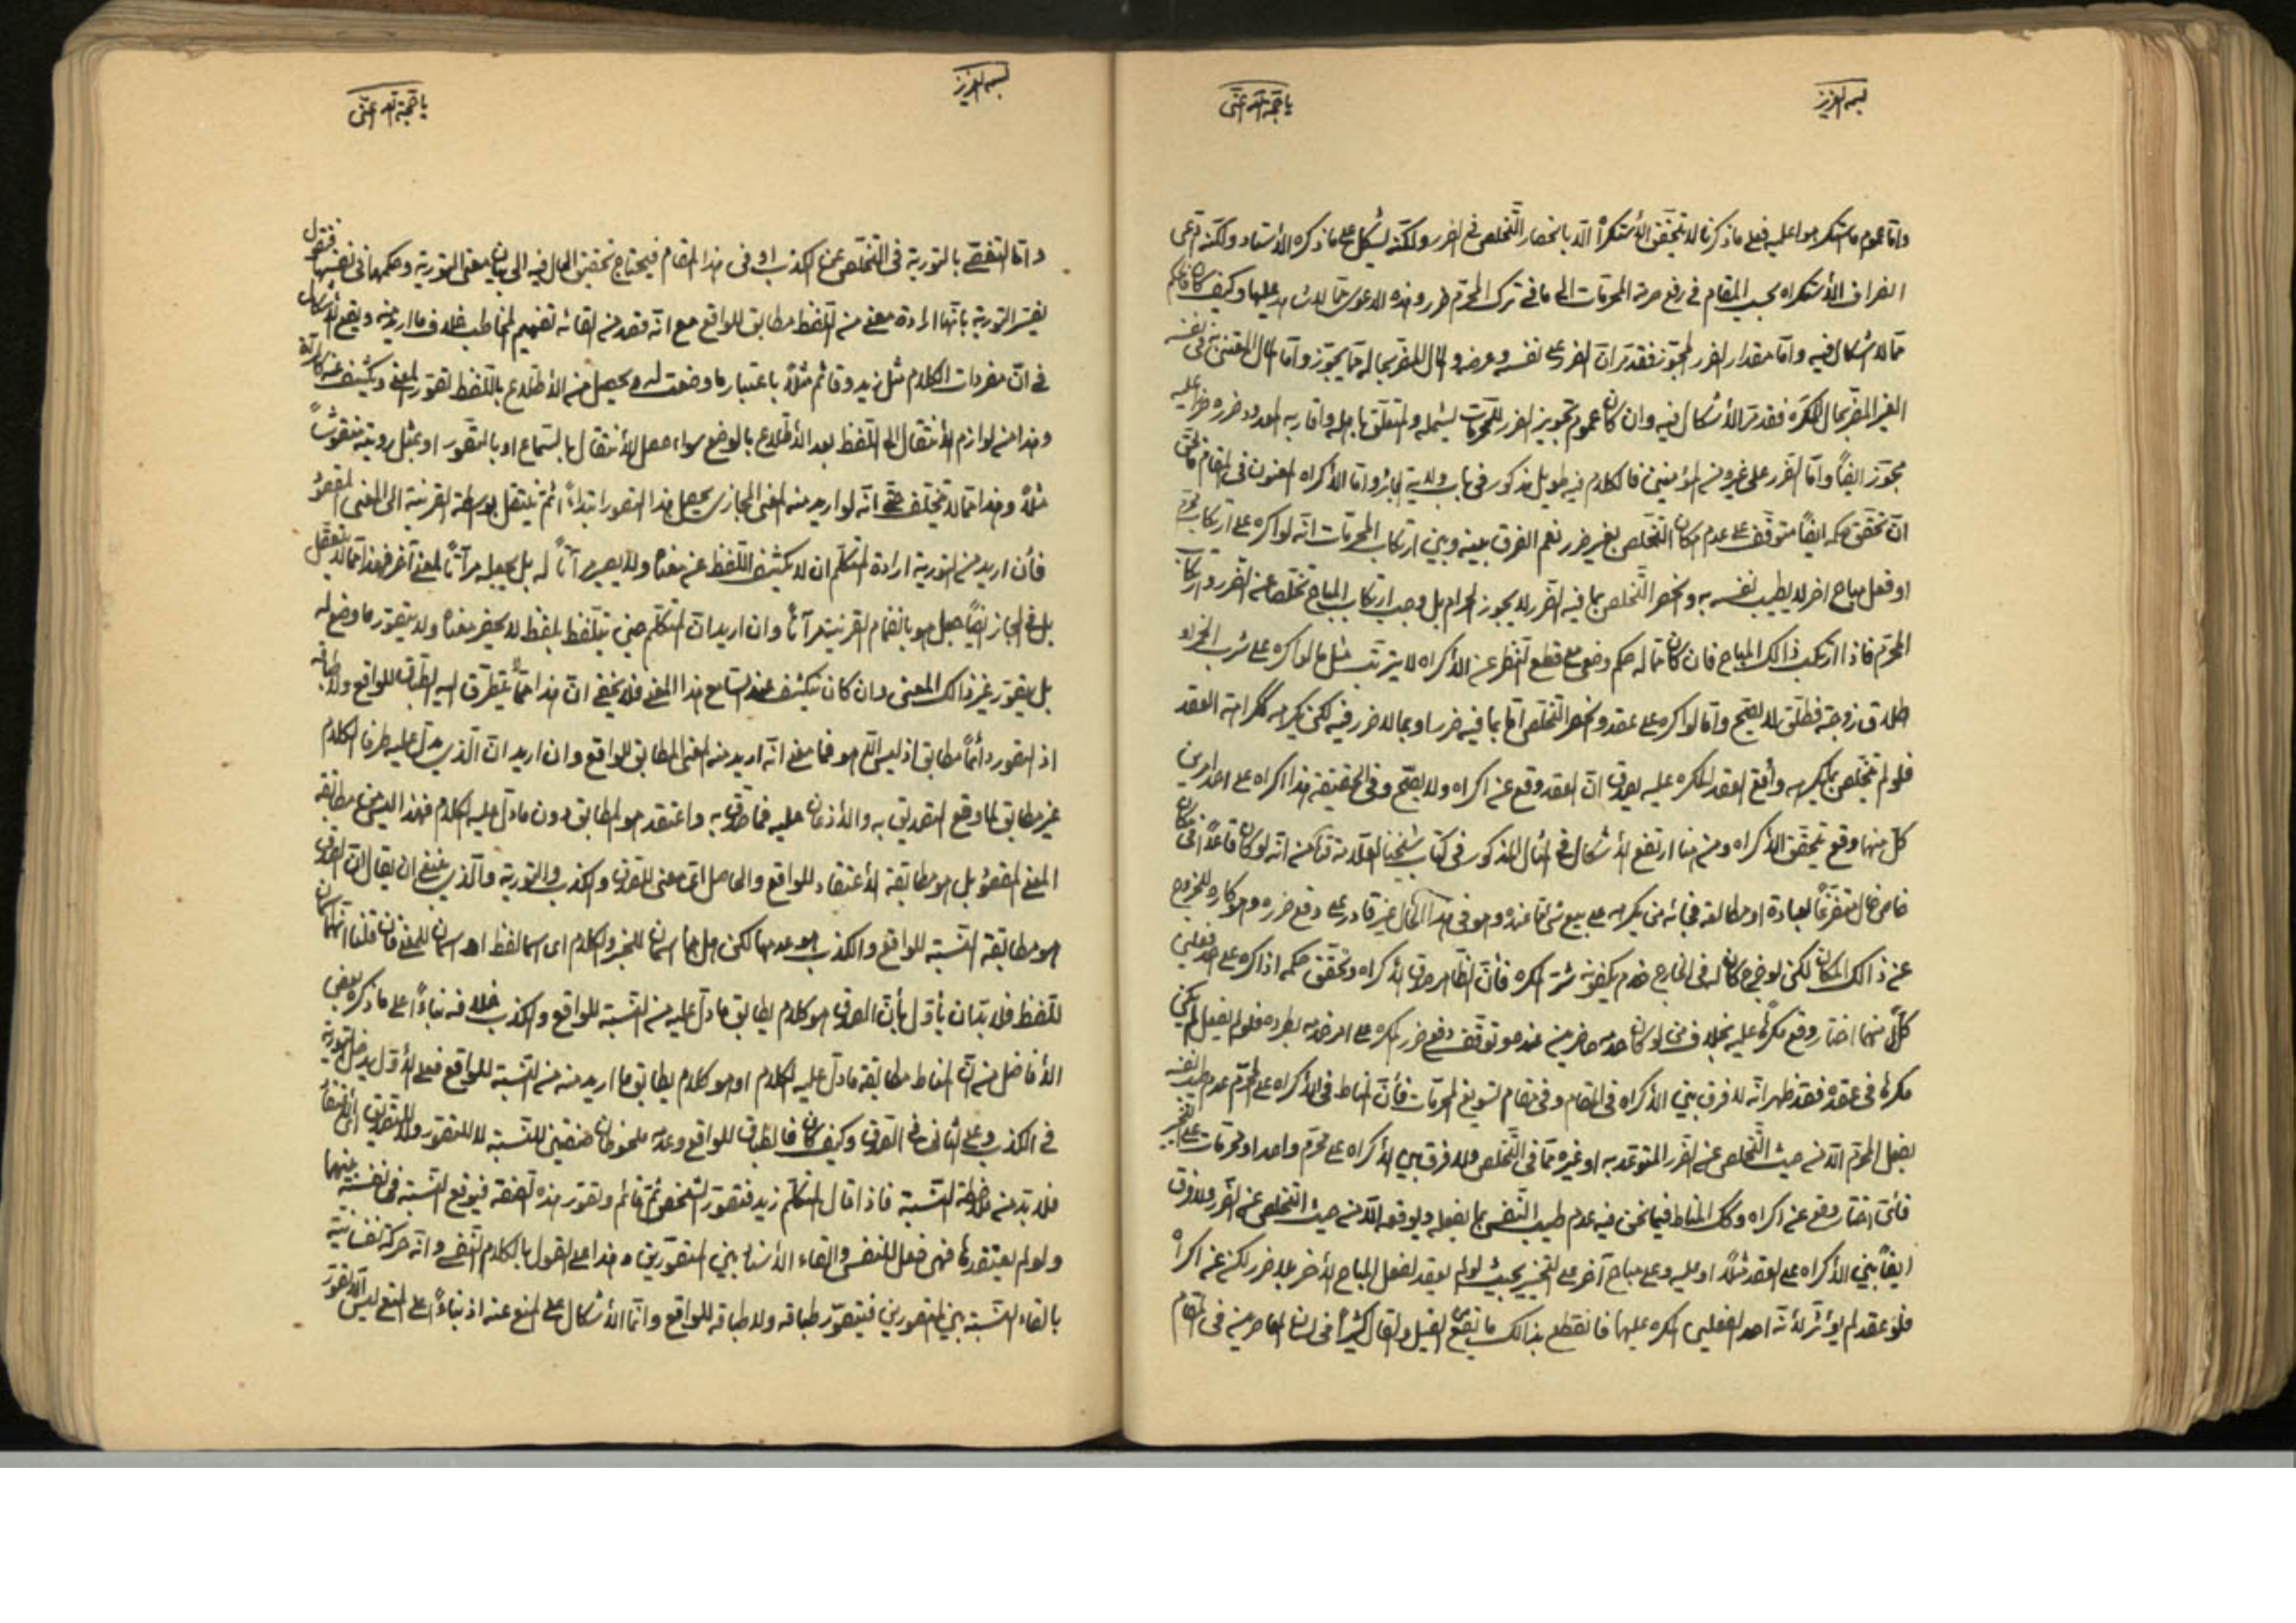 بسمه العزيز
يا حجة الله اغثنى
واما عموم ما استكرهوا عليه فعلى ما ذكرنا لا يتحقق الاستكراه الا بانحصار التخلص فى الضرر ولكنه يشكل على ما ذكره الاستاد ولكنه
انصراف الاستكراه بحسب المقام فى رفع حرمة المحرمات الى ما فى ترك المحرم ضرر وهذه الدعوى مما لا شاهد عليها وكيف كان
مما لا اشكال فيه واما مقدار الضرر المجوز فقد مر ان الضرر على نفسه وعرضه والمال المضر بحاله مما يجوز واما المال
الغير المضر بحال المكره فقد مر الاشكال فيه وان كان عموم تجويز الضرر للمحرمات يشمله والمتعلق باهله واقاربه المعدود ضرره ضررا عليه
مجوز ايضا واما الضرر على غيره من المؤمنين فالكلام فيه طويل مذكور فى باب ولاية الجائر واما الاكراه المعنون فى المقام
ان تحقق حكمه ايضا متوقف على عدم امكان التخلص بغير ضرر نعم الفرق بينه وبين ارتكاب المحرمات انه لو اكره على ارتكاب محرم
او فعل مباح اخر لا يطيب نفسه به وانحصر التخلص بما فيه الضرر لا يجوز الحرام بل وجب ارتكاب المباح تخلصا عن الضرر وارتكاب
المحرم فاذا ارتكب ذالك المباح فان كان مما له حكم وضعى مع قطع النظر عن الاكراه لا يترتب مثل ما لو اكره على شرب الخمر او
طلاق زوجته فطلق لا يصح واما لو اكره على عقد وانحصر التخلص اما بما فيه ضرر او بما لا ضرر فيه لكن يكرهه ككراهة العقد
فلو لم يتخلص بما يكرهه واوقع العقد المكره عليه يصدق ان العقد وقع عن اكراه ولا يصح وفى الحقيقة هذا اكراه على احد امرين
كل منهما وقع تحقق الاكراه ومن هنا ارتفع الاشكال فى المثال المذكور فى كتاب شيخنا العلامة من انه لو كان قاعدا فى مكان
خاص خال متفرغا لعبادة او مطالعة فجائه من يكرهه على بيع شئ مما عنده وهو فى هذا الحال غير قادر على دفع ضرره وهو كاره للخروج
عن ذالك المكان لكن لو خرج كان له فى الخارج خدم يكفونه شر المكره فان الظاهر صدق الاكراه وتحقق حكمه اذا اكره على احد فعلين
كل منهما اختار وقع مكرها عليه بخلاف من لو كان خدمه حاضرين عنده وتوقف دفع ضرر المكره على امر خدمه بطرده فلو لم يفعل لم يكن
مكرها فى عقده فقد ظهر انه لا فرق بين الاكراه فى المقام وفى مقام تسويغ المحرمات فان المناط فى الاكراه على المحرم عدم طيب النفس
بفعل المحرم الا من حيث التخلص عن الضرر المتوعد به او غيره مما فى التخلص ولا فرق بين الاكراه على محرم واحد او محرمات على التخيير
فاى اختار وقع عن اكراه وكك المناط فيما نحن فيه عدم طيب النفس بما يفعله ويوقعه الا من حيث التخلص عن الضرر ولا فرق
ايضا بين الاكراه على العقد مثلا او عليه وعلى مباح آخر على التخيير بحيث لو لم يعقد لفعل المباح الاخر بلا ضرر لكن عن اكراه
فلو عقد لم يؤثر لانه احد الفعلين المكره عليهما فانقطع بذالك ما القيل والقال كثيرا فى لسان المعاصرين فى المقام
بسمه العزيز
يا حجة الله اغثنى
واما التفصى بالتورية فى التخلص عن الكذب او فى هذا المقام فيحتاج تحقيق الحال فيه الى بيان معنى التورية وحكمها فى نفسها فنقول
يفسر التورية بانها ارادة معنى من اللفظ مطابق للواقع مع انه قصد من القائه تفهيم المخاطب خلاف ما اريد منه ويقع الاشكال
فى ان مفردات الكلام مثل زيد وقائم مثلا باعتبار ما وضعت له ويحصل من الاطلاع باللفظ تصور المعنى ويكشف عنه كالمرآة
وهذا من لوازم الانتقال الى اللفظ بعد الاطلاع بالوضع سواء حصل الانتقال باستماع او بالتصور او بمثل رؤيته منقوشا
مثلا وهذا مما لا يتخلف حتى انه لو اريد منه المعنى المجازى يحصل هذا التصور ابتداء ثم ينتقل بواسطة القرينة الى المعنى المقصود
فان اريد من التورية ارادة المتكلم ان لا يكشف اللفظ عن معناه ولا يصير مرآتا له بل يجعله مرآتا لمعنى آخر فهذا مما لا يتعقل
بل فى المجاز ايضا جعل هو بانضمام القرينة مرآتا وان اريد ان المتكلم حين يتلفظ بلفظ لا يحضر معناه ولا يتصور ما وضع له
بل يتصور غير ذالك المعنى وان كان يكشف عند السامع هذا المعنى فلا يخفى ان هذا مما يتطرق اليه الطباق للواقع ولا طباقه
اذ التصور دائما مطابق اذ ليس الا هو فما معنى انه اريد منه المعنى المطابق للواقع وان اريد ان الذى يدل عليه ظرف الكلام
غير مطابق لما وقع التصديق به والاذعان عليه فما صدق به واعتقد هو المطابق دون ما دل عليه الكلام فهذا ليس من مطابقة
المعنى المقصود بل هو مطابقة الاعتقاد للواقع والحاصل اى معنى للصدق والكذب والتورية والذى ينبغى ان يقال ان الصدق
هو مطابقة النسبة للواقع والكذب هو عدمها لكن هل هما اسمان للخبر والكلام اى اسما لفظ او اسمان للمعنى فان قلنا انهما اسمان
للفظ فلا بد ان يأول بان الصدق هو كلام يطابق ما دل عليه من النسبة للواقع والكذب خلافه بناء على ما ذكره بعض
الافاضل من ان المناط مطابقة ما دل عليه الكلام او هو كلام يطابق ما اريد منه من النسبة للواقع فعلى الاول يدخل التورية
فى الكذب وعلى الثانى فى الصدق وكيف كان فالطباق للواقع وعدمه ملحوظان صفتين للنسبة لا للتصور ولا للتصديق اى الاعتقاد
فلا بد من ملاحظة النسبة فاذا قال المتكلم زيد فتصور الشخص ثم قائم وتصور هذه الصفة فيوقع النسبة فى نفسه بينهما
ولو لم يعتقدها فهى فعل للنفس والقاء الاسناد بين المتصورين هذا على القول بالكلام النفسى وانه حركة نفسانية
بالقاء النسبة بين المتصورين فيتصور طباقه ولا طباقه للواقع وانما الاشكال على المنع عنه اذ بناء على المنع ليس الا تصور